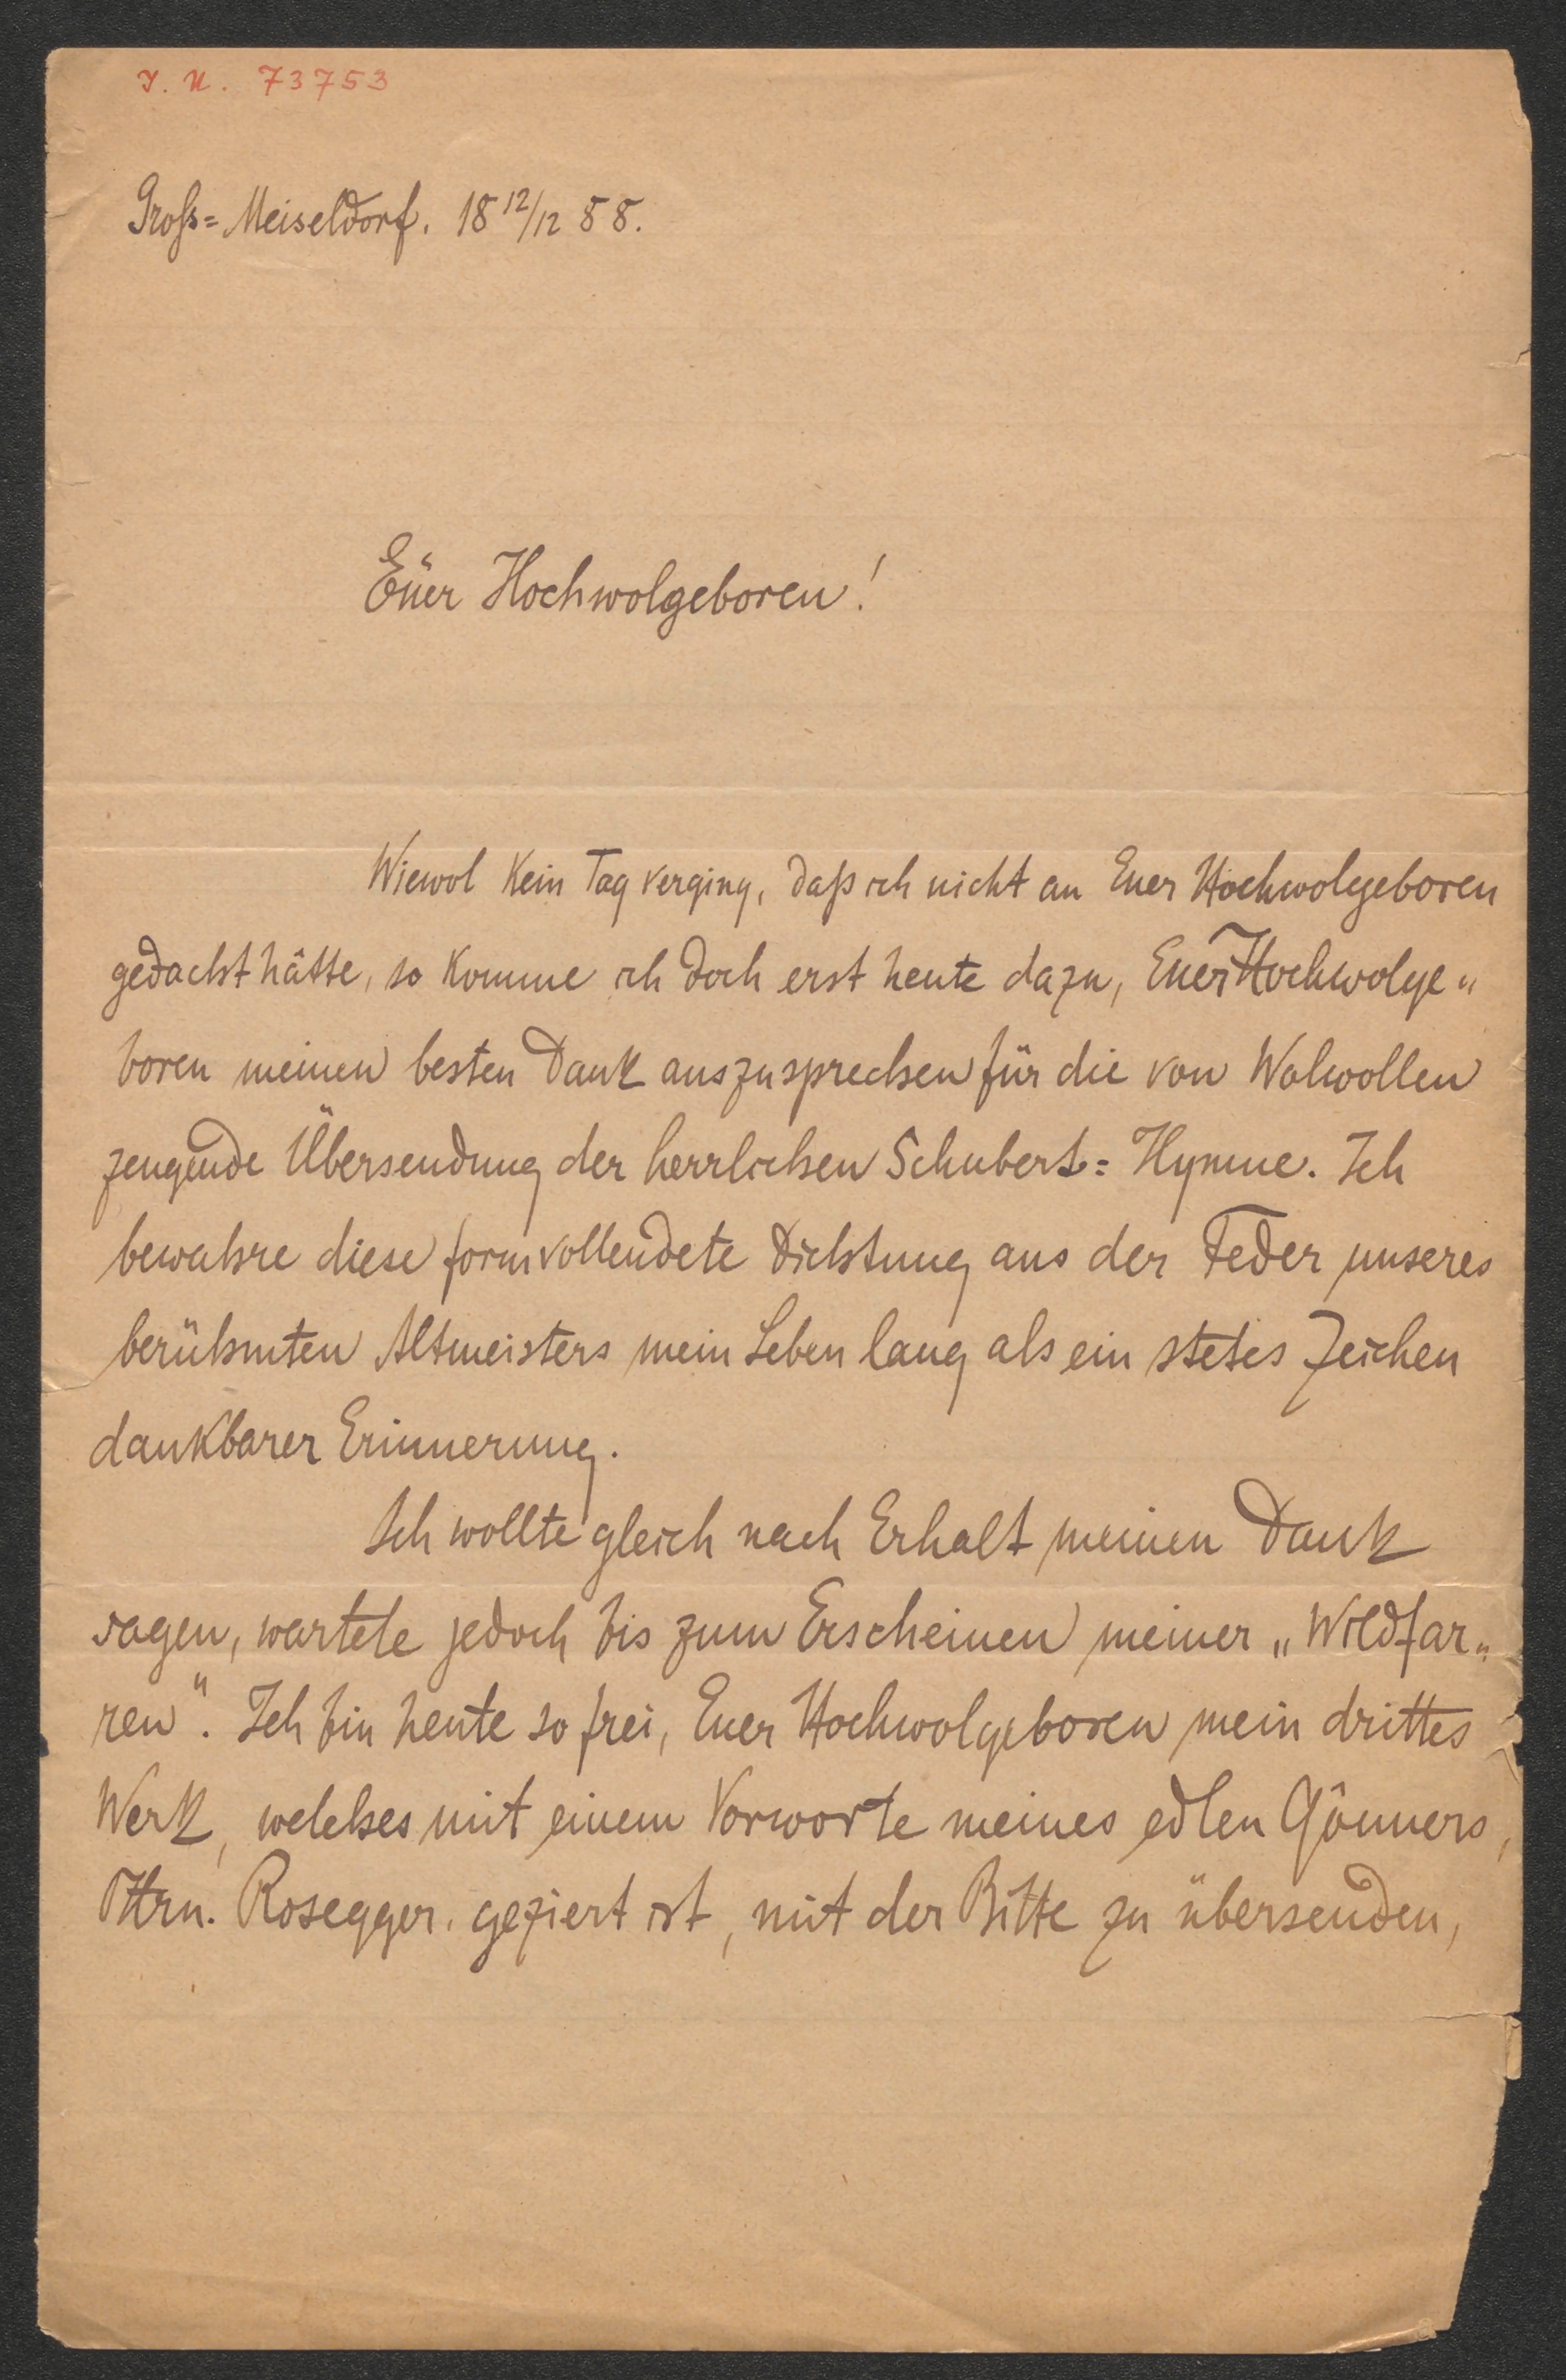 I. N. 73753
Gross=Meiseldorf. 18 12/12 88.
Euer Hochwolgeboren!
Wiewol kein Tag verging, daß ich nicht an Euer Hochwolgeboren
gedacht hätte, so komme ich doch erst heute dazu, Euer Hochwolge„
boren meinen besten Dank auszusprechen für die von Wolwollen
zeugende Übersendung der herrlichen Schubert=Hymne. Ich
bewahre diese formvollendete Dichtung aus der Feder unseres
berühmten Altmeisters mein Leben lang als ein stetes Zeichen
dankbarer Erinnerung.
Ich wollte gleich nach Erhalt meinen Dank
sagen, wartete jedoch bis zum Erscheinen meiner „Wildfar„
ren". Ich bin heute so frei, Euer Hochwolgeboren mein drittes
Werk, welches mit einem Vorworte meines edlen Gönners,
Hrn. Rosegger. geziert ist, mit der Bitte zu übersenden,